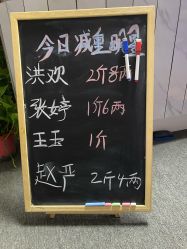 今日减重明
洪欢 2斤8两
张婷 1斤6两
王玉 1斤
赵严 2斤4两